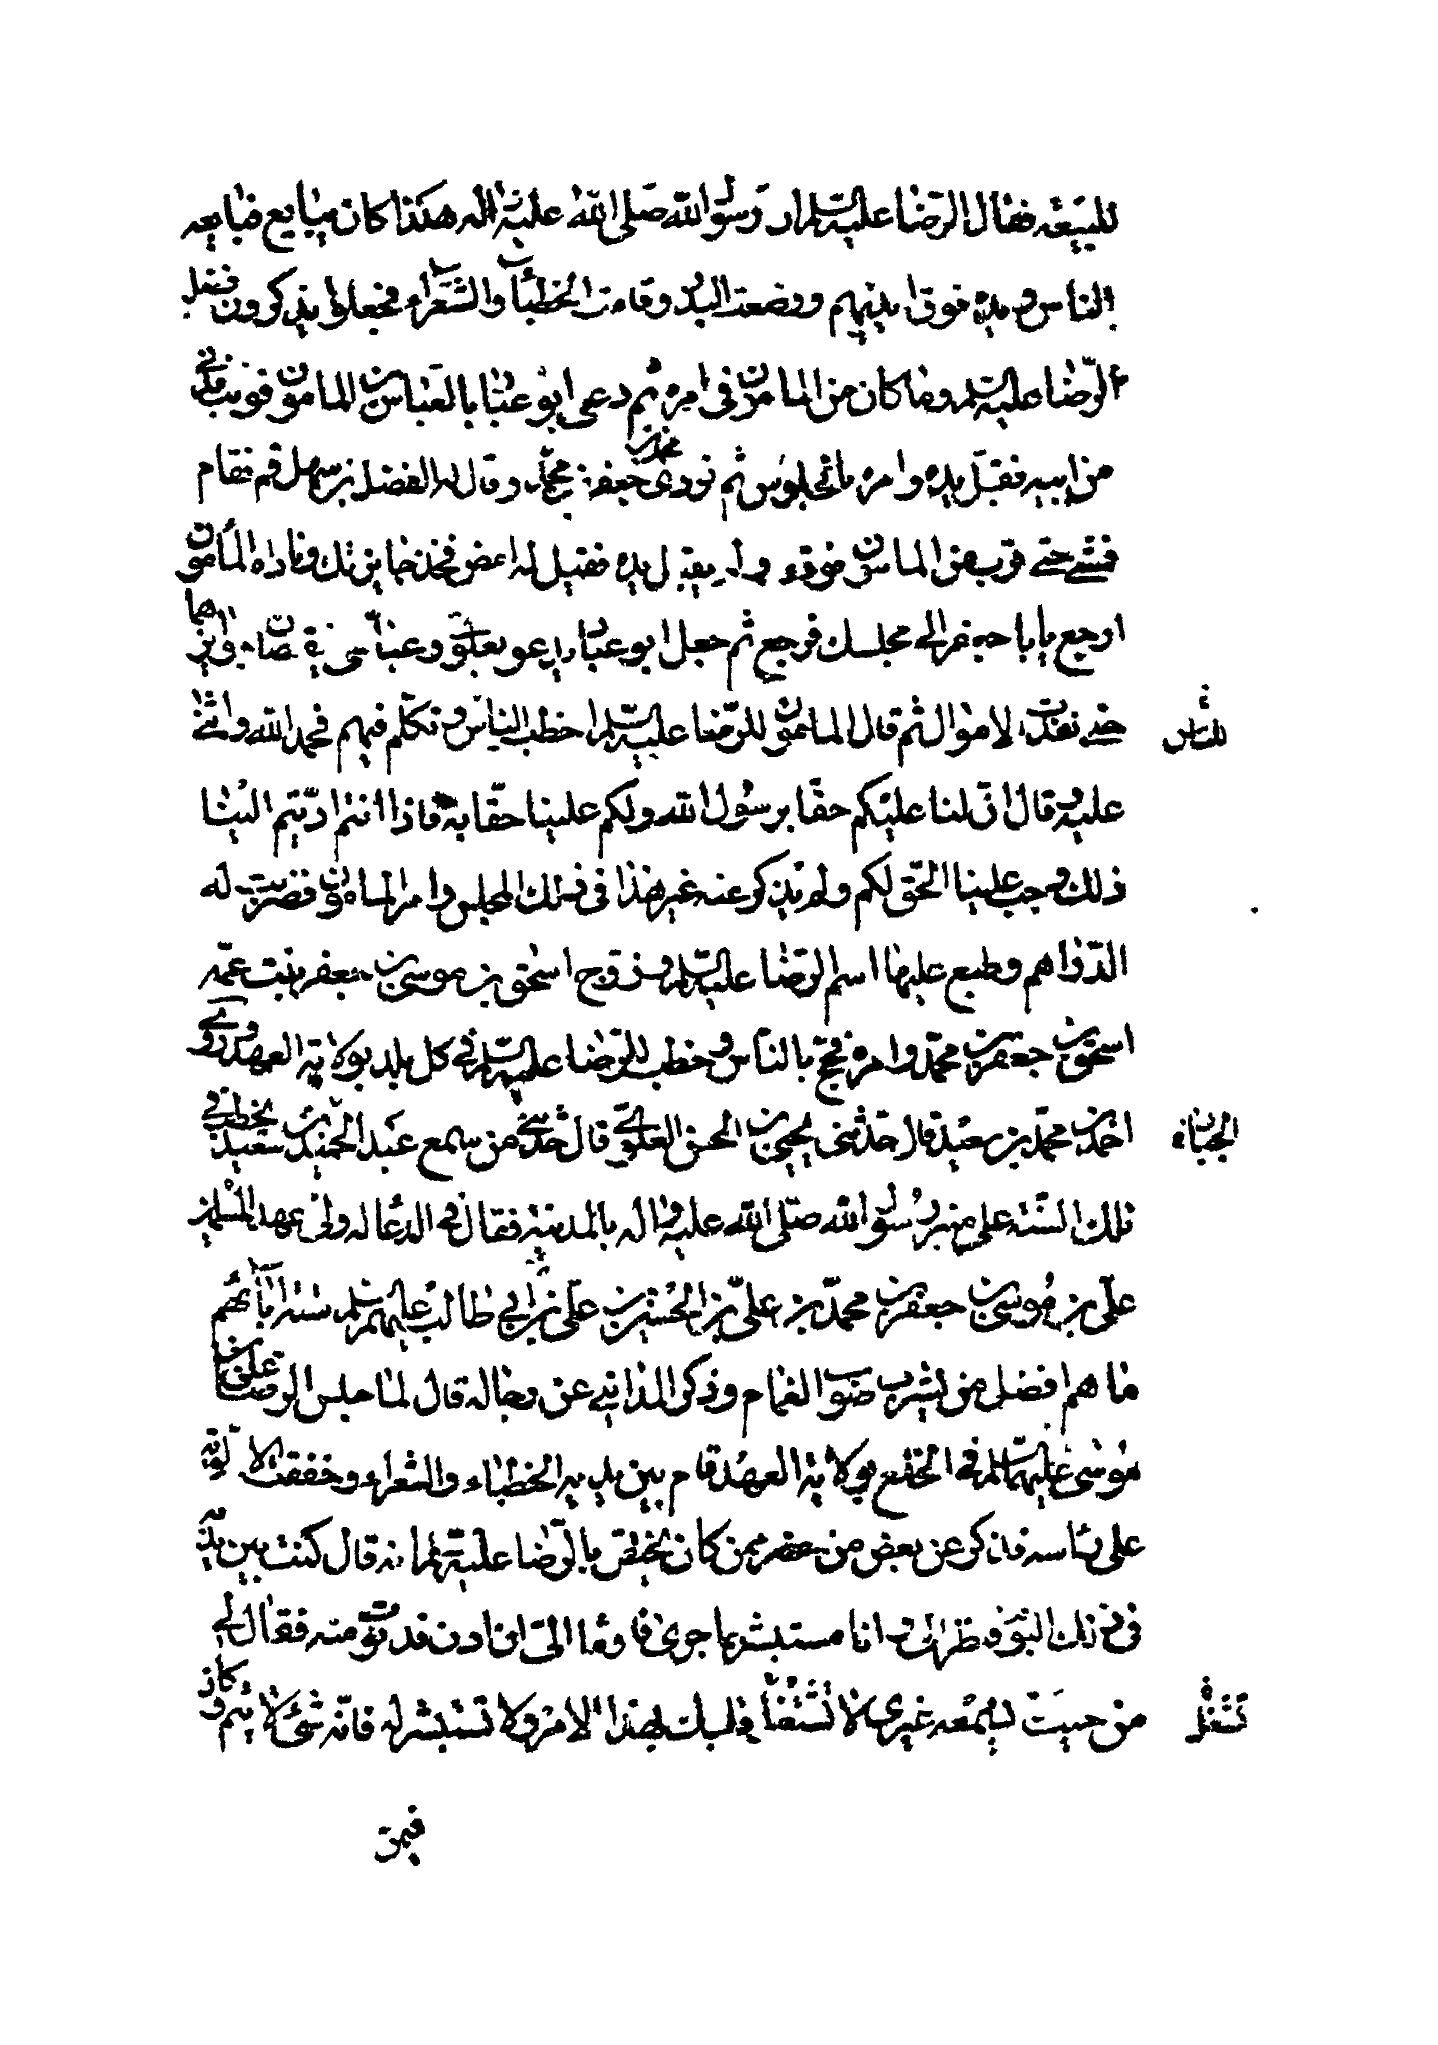 للبيعه فقال الرضا عليه السلم ان رسول الله صلى الله عليه واله هكذا كان يبايع فبايعه
الناس ويده فوق ايديهم ووضعت البدر وقامت الخطباء والشعراء فجعلوا يذكرون فضل
الرضا عليه السلم وما كان من المامون في امره ثم دعى ابو عباد بالعباس بن المامون فوثب فدنى
من ابيه فقبل يده وامره بالجلوس ثم نودى محمد بن جعفر بن محمد وقال له الفضل بن سهل قم فقام
فمشى حتى قرب من المامون فوقف ولم يقبل يده فقيل له امض فخذ جايزتك وناداه المأمون
ارجع يا با جعفر الى مجلسك فرجع ثم جعل ابو عباد يدعو بعلوى وعباسى فيقبضان جوايزهما
حتى نفدت الاموال ثم قال المامون للرضا عليه السلم اخطب الناس وتكلم فيهم فحمد الله واثنى
للناس
عليه وقال ان لنا عليكم حقا برسول الله ولكم علينا حقا به فاذا انتم اديتم الينا
ذلك وجب علينا الحق لكم ولم يذكر عنه غير هذا في ذلك المجلس وامر المامون فضربت له
الدراهم وطبع عليها اسم الرضا عليه السلم وزوج اسحق بن موسى بن جعفر بنت عمه
اسحق بن جعفر بن محمد وامره فحج بالناس وخطب للرضا عليه السلم في كل بلد بولاية العهد وروى
احمد بن محمد بن سعيد قال حدثني يحيى بن الحسن العلوي قال حدثني من سمع عبد الحميد بن سعيد يخطب في
تلك السنة على منبر رسول الله صلى الله عليه واله بالمدينة فقال في الدعا له ولى عهد المسلمين
على بن موسى بن جعفر بن محمد بن على بن الحسين بن على بن ابي طالب عليهم السلم ستة اباؤهم
ما هم افضل من يشرب صوب الغمام وذكر المداينى عن رجاله قال لما جلس الرضا على بن
موسى عليهما السلم في الخلع بولاية العهد قام بين يديه الخطباء والشعراء وخفقت الالوية
على راسه فذكر عن بعض من حضر ممن كان يختص بالرضا عليه السلم انه قال كنت بين يديه
في ذلك اليوم فنظر الى وانا مستبشر بما جرى فاومأ الى ان ادن فدنوت منه فقال لى
من حيث لا يسمعه غيرى لا تشغل قلبك بهذا الامر ولا تستبشر له فانه شئ لا يتم وكان
تشغل
فيمن